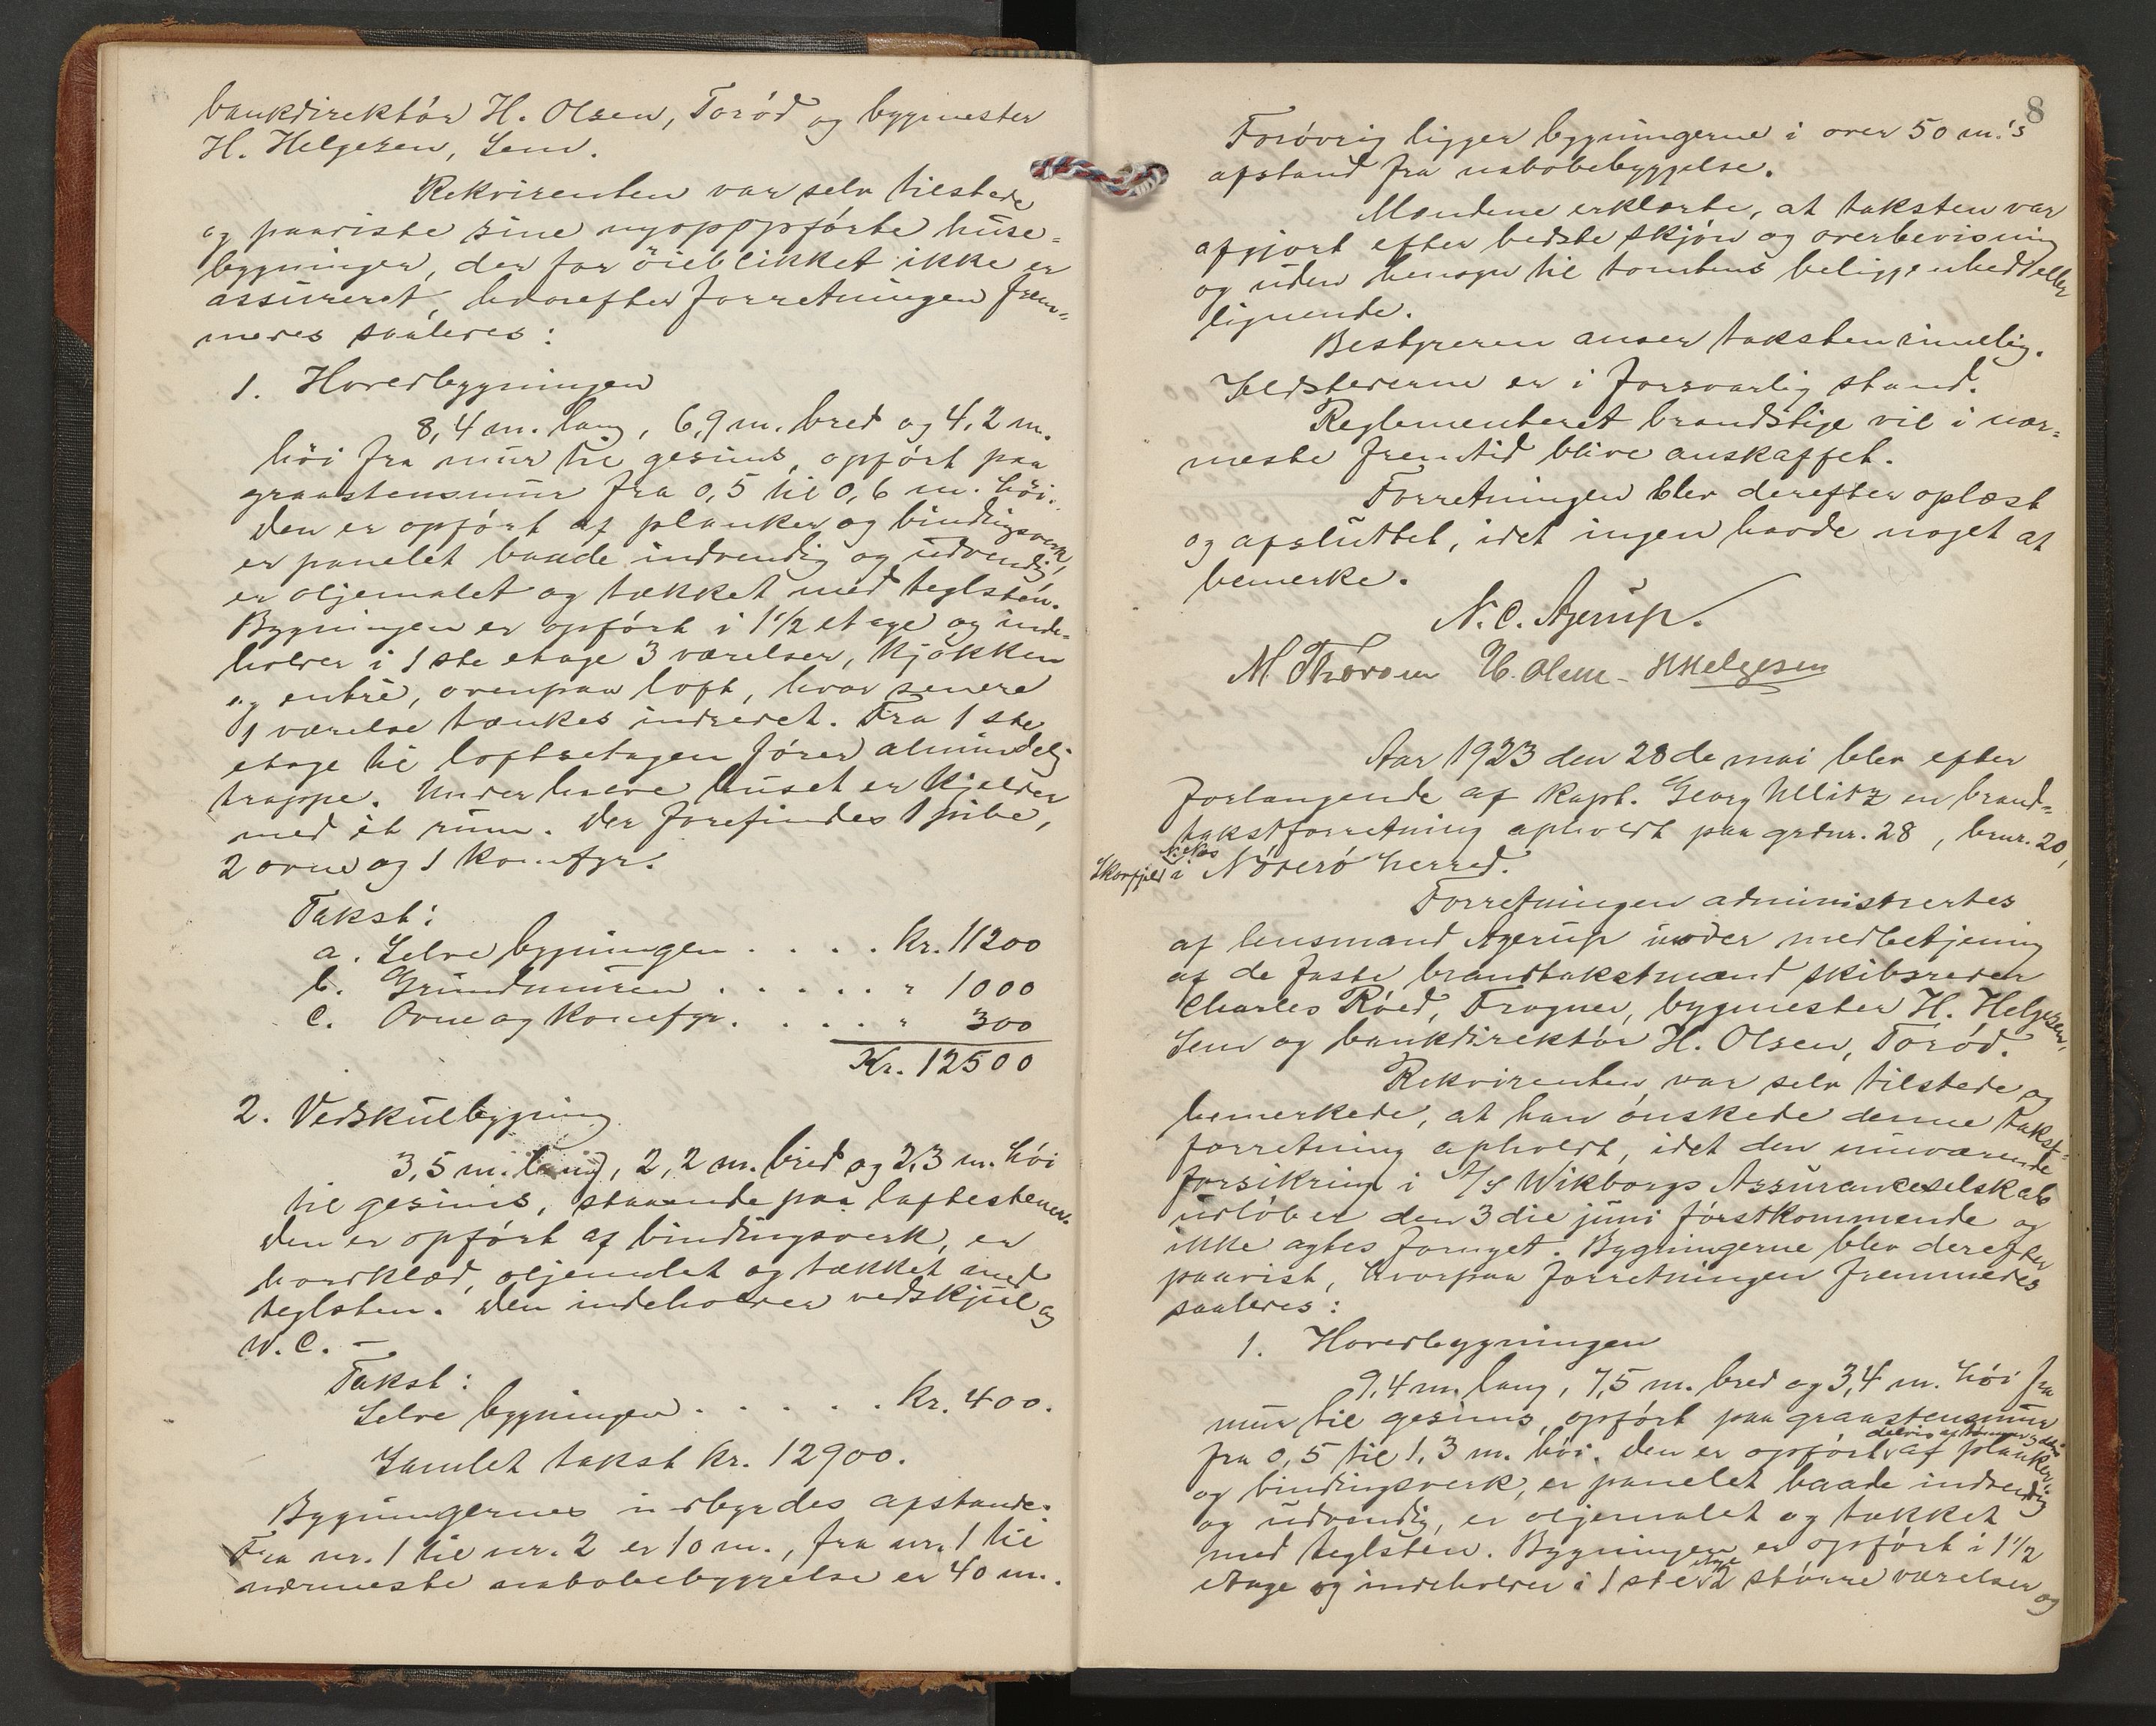 bankdirektör H. Olsen, Toröd og bygmester
H. Helgesen, Sem.
Rekvirenten var selv tilstede
og paaviste sine nyoppförte huse-
bygninger, der for öieblikket ikke er
assureret, hvorefter forretningen frem-
meres saaledes:
1. Hovedbygningen
8,4 m. lang, 6,9 m. bred og 4,2 m.
höi fra mur til gesims, opfört paa
graastensmur fra 0,5 til 0,6 m. höi.
Den er opfört af planker og bindingsverk,
er panelet baade indvendig og udvendig,
er oljemalet og tækket med teglsten.
Bygningen er opfört i 1 1/2 etage og inde-
holder i 1ste etage 3 værelser, kjökken
og entrè, ovenpaa loft, hvor senere
1 værelse tænkes indredet. Fra 1ste
etage til loftsetagen förer almindelig
trappe. Under halve huset er kjelder
med èt rum. Der forefindes 1 pibe,
2 ovne og 1 komfyr.
Takst:
a. Selve bygningen . . . . kr. 11200
b. Grundmuren . . . . . " 1000
c. Ovne og komfyr. . . . . " 300
Kr. 12500
2. Vedskulbygning
3,5 m. lang, 2,2 m. bred og 2,3 m. höi
til gesims, staaende paa laftestener.
Den er opfört af bindingsverk, er
bordklæd, oljemalet og tækket med
teglsten. Den indeholder vedskjul og
W.C. —
Takst:
Selve bygningen . . . . . kr. 400.
Samlet takst kr. 12900.
Bygningernes indbyrdes afstande.
Fra nr. 1 til nr. 2 er 10 m., fra nr. 1 til
nærmeste nabobebyggelse er 40 m.
8
Forövrig ligger bygningerne i over 50 m.'s
afstand fra nabobebyggelse.
Mændene erklærte, at taksten var
afgjort efter bedste skjön og overbevisning
og uden hensyn til tomtens beliggenhed eller
lignende.
Bestyreren anser taksten rimelig.
Ildstederne er i forsvarlig stand.
Reglementeret brandstige vil i nær-
meste fremtid blive anskaffet.
Forretningen blev derefter oplæst
og afsluttet, idet ingen havde noget at
bemerke.
N. C. Agerup.
M. Thorsen H. Olsen - H Helgesen
Aar 1923 den 28de mai blev efter
forlangende af kapt. Georg Ullitz en brand-
takstforretning apholdt paa grdnr. 28, brnr. 20,
Skarpfjeld i Nöterö herred.
Forretningen administrertes
af lensmand Agerup under medbetjening
af de faste brandtakstmænd skibsreder
Charles Röed, Trogner, bygmester H. Helgesen,
Sem og bankdirektör H. Olsen, Toröd.
Rekvirenten var selv tilstede og
bemerkede, at han önskede denne takst-
forretning apholdt, idet den nuværende
forsikring i A/S Wikborgs Assuranceselskab
udlöber den 3die juni förstkommende og
ikke agtes fornyet. Bygningerne blev derefter
paavist, hvorpaa forretningen fremmedes
saaledes:
1. Hovedbygningen
9,4 m. lang, 7,5 m. bred og 3,4 m. höi fra
mur til gesims, opfört paa graastensmur
fra 0,5 til 1,3 m. höi. Den er opfört delvis af tømmer og delvis af planker
og bindingsverk, er panelet baade indvendig
og udvendig, er oljemalet og tækket
med teglsten. Bygningen er opfört i 1 1/2
etage og indeholder i 1ste etage 2 större værelser og